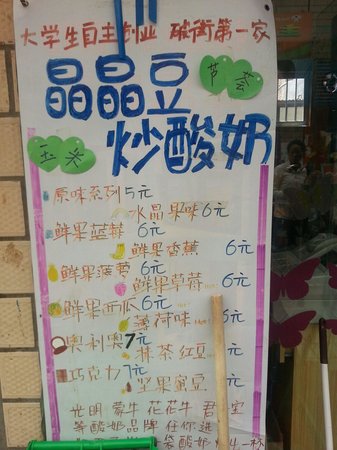 大学生自主创业 碱街第一家
晶晶豆
芦荟
玉米
炒酸奶
原味系列5元
水晶果味6元
鲜果蓝莓 6元
鲜果香蕉 6元
鲜果菠萝6元
鲜果草莓 6元
鲜果西瓜6元
薄荷味 元
奥利奥7元
抹茶红豆 元
巧克力7元
坚果蜜豆 元
光明 蒙牛 花花牛 君 宝
等酸奶品牌 任你选
袋酸奶 一杯